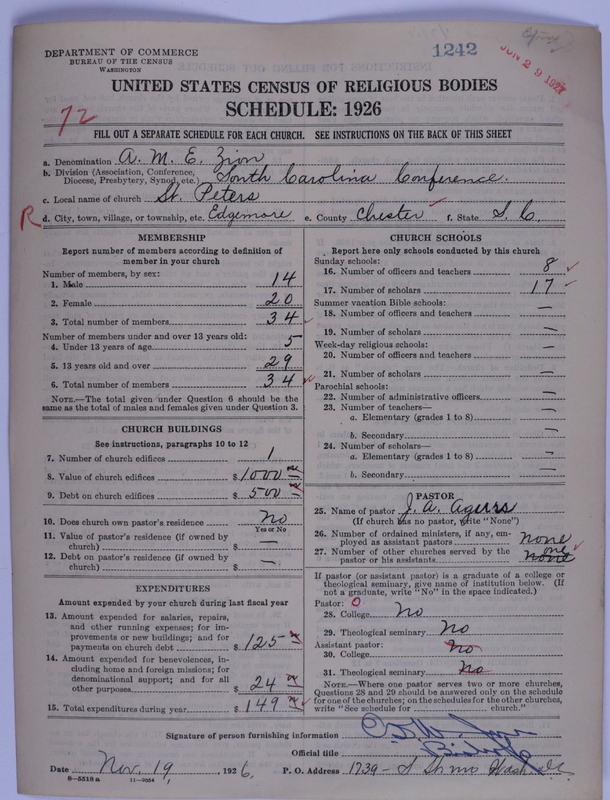 DEPARTMENT OF COMMERCE
BUREAU OF THE CENSUS
WASHINGTON
1242
JUN 29 1927
UNITED STATES CENSUS OF RELIGIOUS BODIES
SCHEDULE: 1926
72
FILL OUT A SEPARATE SCHEDULE FOR EACH CHURCH. SEE INSTRUCTIONS ON THE BACK OF THIS SHEET
a. Denomination A. M. E. Zion
b. Division (Association, Conference, Diocese, Presbytery, Synod, etc.) South Carolina Conference.
c. Local name of church St. Peters
R d. City, town, village, or township, etc. Edgemore e. County Chester f. State S. C.
MEMBERSHIP
Report number of members according to definition of
member in your church
Number of members, by sex:
1. Male 14
2. Female 20
3. Total number of members 34
Number of members under and over 13 years old:
4. Under 13 years of age 5
5. 13 years old and over 29
6. Total number of members 34
NOTE.—The total given under Question 6 should be
same as the total of males and females given under Question 3.
CHURCH BUILDINGS
See instructions, paragraphs 10 to 12
7. Number of church edifices 1
8. Value of church edifices $ 1000
9. Debt on church edifices $ 500
10. Does church own pastor's residence No
Yes or No
11. Value of pastor's residence (if owned by
church) $ —
12. Debt on pastor's residence (if owned by
church) $ —
EXPENDITURES
Amount expended by your church during last fiscal year
13. Amount expended for salaries, repairs,
and other running expenses; for im-
provements or new buildings; and for
payments on church debt $ 125
14. Amount expended for benevolences, in-
cluding home and foreign missions; for
denominational support; and for all
other purposes $ 24
15. Total expenditures during year $ 149
CHURCH SCHOOLS
Report here only schools conducted by this church
Sunday schools:
16. Number of officers and teachers 8
17. Number of scholars 17
Summer vacation Bible schools:
18. Number of officers and teachers —
19. Number of scholars —
Week-day religious schools:
20. Number of officers and teachers —
21. Number of scholars —
Parochial schools:
22. Number of administrative officers —
23. Number of teachers—
a. Elementary (grades 1 to 8) —
b. Secondary —
24. Number of scholars—
a. Elementary (grades 1 to 8) —
b. Secondary —
PASTOR
25. Name of pastor J. A. Agurs
(If church has no pastor, write "None")
26. Number of ordained ministers, if any, em-
ployed as assistant pastors none
27. Number of other churches served by the
pastor or his assistants none one
If pastor (or assistant pastor) is a graduate of a college or
theological seminary, give name of institution below. (If
not a graduate, write "No" in the space indicated.)
Pastor: O
28. College No
29. Theological seminary No
Assistant pastor:
30. College No
31. Theological seminary No
NOTE.—Where one pastor serves two or more churches,
Questions 28 and 29 should be answered only on the schedule
for one of the churches; on the schedules for the other churches,
write "See schedule for church."
Signature of person furnishing information
Official title Bishop
Date Nov. 19, 1926. P. O. Address 1739- S St. nw Wash. dc
8—5518a 11—9054